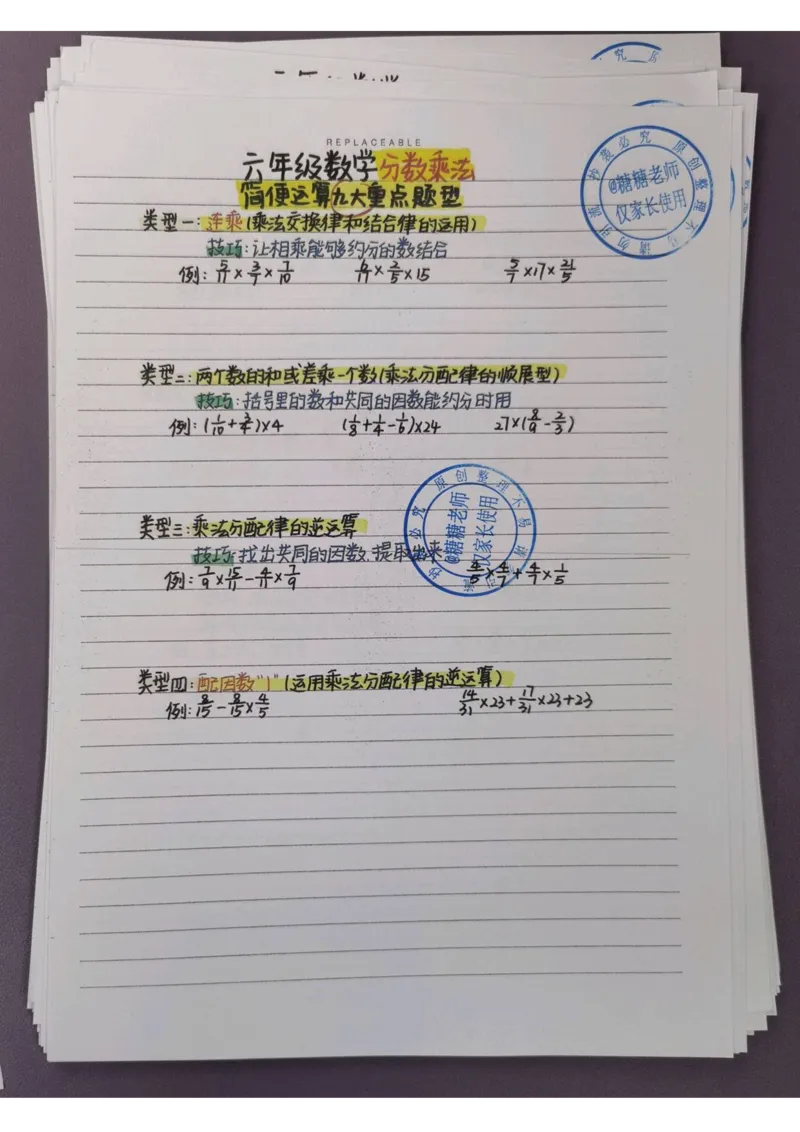 REPLACEABLE
六年级数学分数乘法
简便运算九大重点题型
类型一:连乘(乘法交换律和结合律的运用)
技巧:让相乘能够约分的数结合
例: 5/11×3/7×7/10 2/5×15 5/7×17×21/5
类型二:两个数的和或差乘一个数(乘法分配律的顺展型)
技巧:括号里的数和共同的因数能约分时用
例:(1/10+3/4)×4 (1/8+1/4-1/6)×24 27×(8/9-2/3)
类型三:乘法分配律的逆运算
技巧:找出共同的因数,提取出来
例: 7/9×15/11-4/11×7/9 4/5×4/7+4/7×1/5
类型四:配因数"1"(运用乘法分配律的逆运算)
例: 8/15-8/15×4/5 14/31×23+17/31×23+23
@糖糖老师
仅家长使用
原创整理不
抄袭必究
@糖糖老师
仅家长使用
原创整理不易
必究